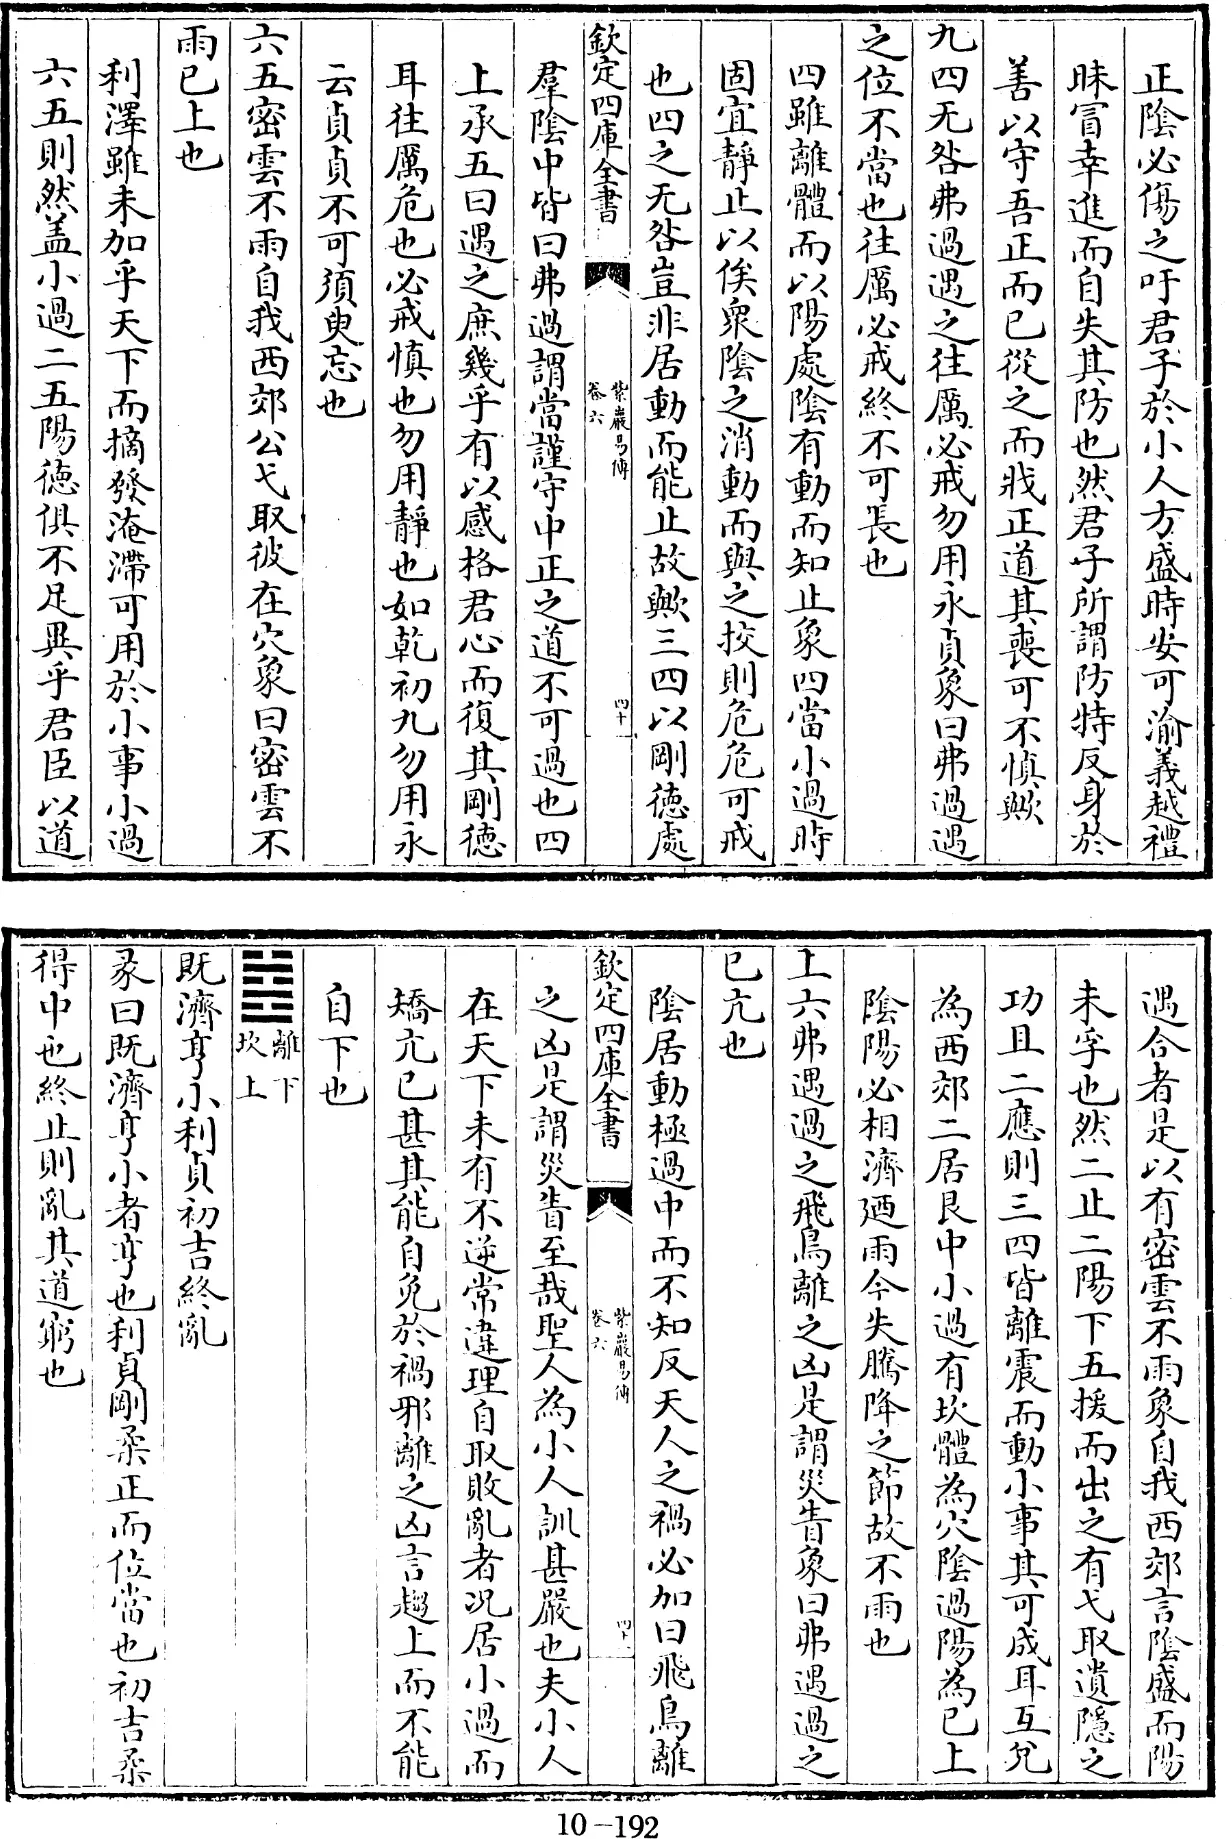 正陰必傷之吁君子於小人方盛時安可渝義越禮
昧冒幸進而自失其防也然君子所謂防特反身於
善以守吾正而已從之而戕正道其喪可不慎歟
九四无咎弗過遇之往厲必戒勿用永貞象曰弗過遇
之位不當也往厲必戒終不可長也
四雖離體而以陽處陰有動而知止象四當小過時
固宜靜止以俟衆陰之消動而與之挍則危危可戒
也四之无咎豈非居動而能止故歟三四以剛德處
欽定四庫全書
紫巖易傳
卷六
四十
羣陰中皆曰弗過謂當謹守中正之道不可過也四
上承五曰遇之庶幾乎有以感格君心而復其剛德
耳往厲危也必戒慎也勿用靜也如乾初九勿用永
云貞貞不可須臾忘也
六五密雲不雨自我西郊公弋取彼在穴象曰密雲不
雨已上也
利澤雖未加乎天下而摘發淹滯可用於小事小過
六五則然盖小過二五陽德俱不足異乎君臣以道
遇合者是以有密雲不雨象自我西郊言陰盛而陽
未孚也然二止二陽下五援而出之有弋取遺隱之
功且二應則三四皆離震而動小事其可成耳互兊
為西郊二居艮中小過有坎體為穴陰過陽為已上
陰陽必相濟廼雨今失騰降之節故不雨也
上六弗遇過之飛鳥離之凶是謂災眚象曰弗遇過之
已亢也
陰居動極過中而不知反天人之禍必加曰飛鳥離
欽定四庫全書
紫巖易傳
卷六
四十一
之凶是謂災眚至哉聖人為小人訓甚嚴也夫小人
在天下未有不逆常違理自取敗亂者况居小過而
矯亢已甚其能自免於禍邪離之凶言趨上而不能
自下也
䷾離下
坎上
既濟亨小利貞初吉終亂
彖曰既濟亨小者亨也利貞剛柔正而位當也初吉柔
得中也終止則亂其道窮也
10-192